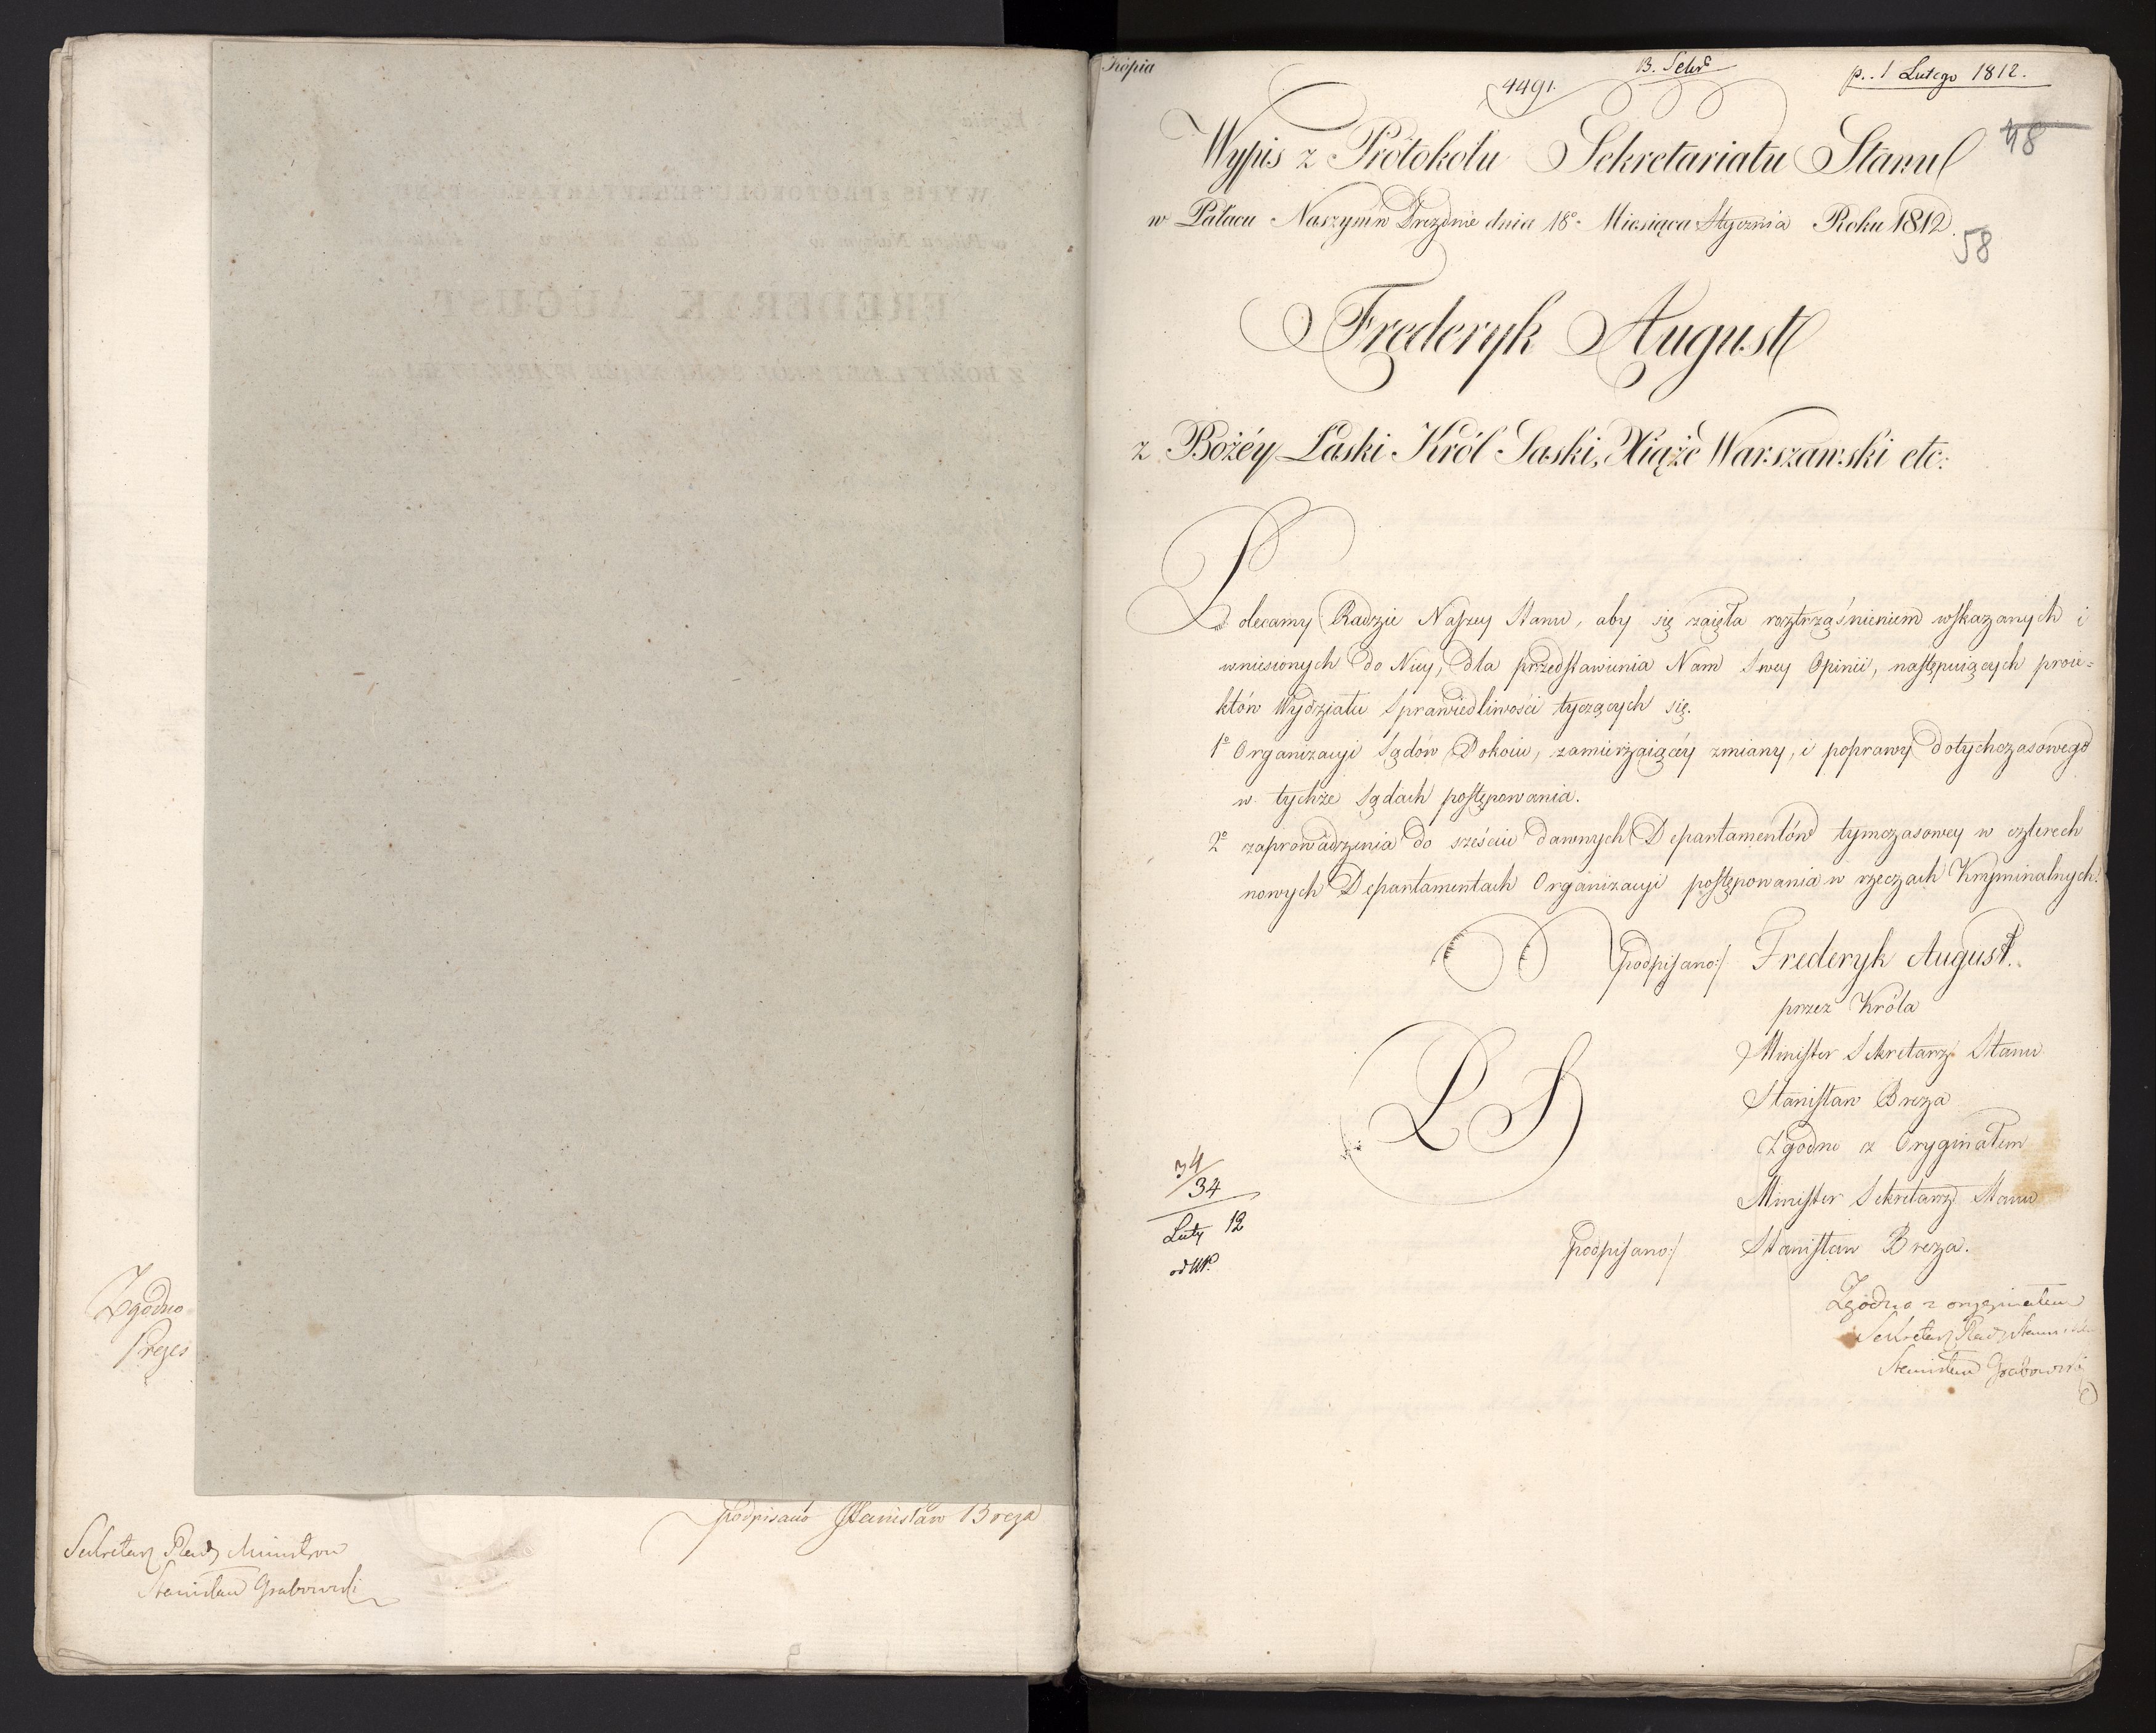 Zgodno
Prezes
podpisano Stanisław Breza
Sekretarz Rady Ministrow
Stanisław Grabowski
Kopia
B. Sekr
p. 1 Lutego 1812.
4491.
Wypis z Protokołu Sekretariatu Stanu
48
w Pałacu Naszym w Dreznie dnia 18º Miesiąca Stycznia Roku 1812.
58
Frederyk August
z Bożéy Łaski Król Saski, Xiąże Warszawski etc:
Polecamy Radzie Naszey Stanu, aby się zaięła roztrząśnieniem wskazanych i
wniesionych do Niey, dla przedstawienia Nam Swey Opinii, następuiących proie=
któw Wydziału Sprawiedliwości tyczących się.
1º Organizacyi Sądów Pokoiu, zamierzaiącéy zmiany, i poprawy dotychczasowego
w tychże Sądach postępowania.
2º zaprowadzenia do sześciu dawnych Departamentów tymczasowey w czterech
nowych Departamentach Organizacyi postępowania w rzeczach Kryminalnych.
podpisano:/ Frederyk August.
przez Króla
Minister Sekretarz Stanu
Stanisław Breza
Zgodno z Oryginałem
Minister Sekretarz Stanu
podpisano:/ Stanisław Breza.
LS
34
34
Luty 12
Zgodno z oryginałem
Sekretarz Rady Stanu
Stanisław Grabowski